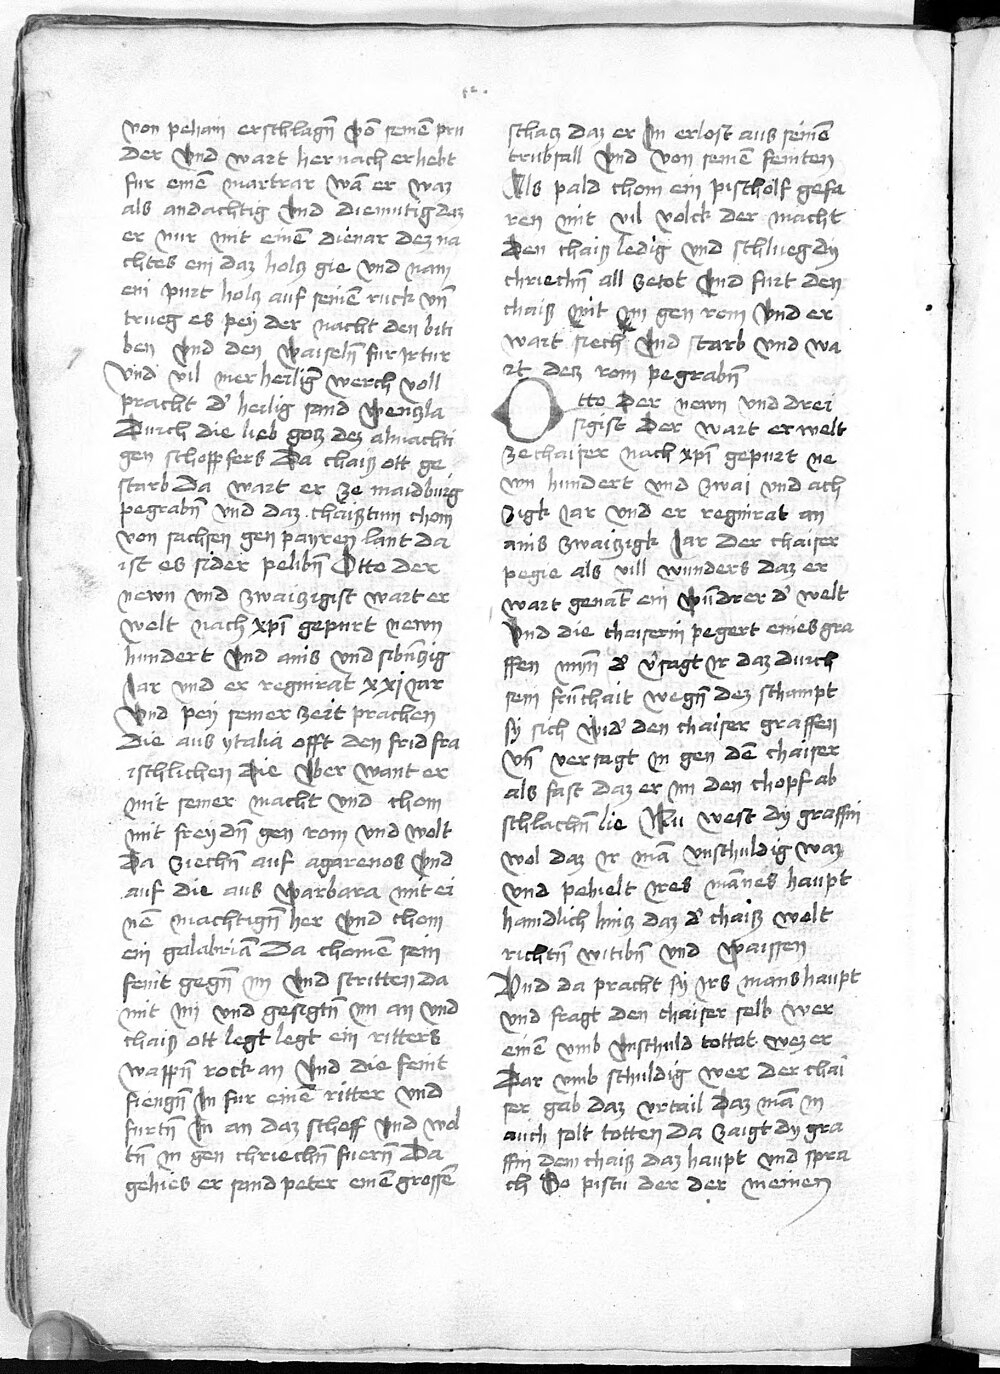 von peham erschlagn̄ vō seinē pru
der vnd wart her nach erhebt
fur einē martrar wā er waz
als andachtig vnd diemutig daz
er nur mit einen dienar dez na
chtes ein daz holtz gie vnd nam
ein purt holtz auf seinē ruck vn̄
trueg es pey der nacht den biti
ben vnd den waiseln̄ fur ir tur
vnd vil mer heiliḡ werch voll
pracht d' heilig sand wenzla
Durch die lieb gotz dez almachti
gen schoppfers Da chaiß ott ge
starb Da wart er ze maidburg
pegrabn̄ vnd daz chaißtinn chom
von sachsen gen payren lant da
ist es sider pelibn̄ Otto der
newn vnd zwaizigist wart er
welt nach xpī gepurt newn
hundert vnd ains vnd sibn̄zig
Iar vnd er regnirat xxj iar
vnd pey seiner zeit prachen
die aus ytalia offt den frid fra
ischlichen Die vber want er
mit seiner macht vnd chom
mit freydn̄ gen rom vnd wolt
Da ziechn̄ auf agarenos vnd
auf die aus warbara mit ei
nē machtign̄ her vnd chom
ein galabriā Da chomē sein
feint gegn̄ im vnd stritten da
mit im vnd gesigtn̄ im an vnd
chaiß ott legt legt ein ritters
wappn̄ rock an vnd die feint
fiengn̄ in fur einē ritter vnd
furtn̄ in an daz scheff vnd wol
tn̄ in gen chriechn̄ fuern̄ Da
gehies er sand peter einē grossē
schatz daz er in erlost aus seinē
trubsall vnd von seinē feinten
Als pald chom ein pischolf gefa
ren mit vil volck der macht
den chaiß ledig vnd schlueg dy
chriechn̄ all zetot vnd furt den
chaiß mit im gen rom vnd er
wart siech vnd starb vnd wa
rt dez rom pegrabn̄
Otto der newn vnd drei
sigist der wart erwelt
ze chaiser nach xpī gepurt ne
wn hundert vnd zwai vnd ach
zigk iar vnd er regnirat an
ains zwaizigk Iar der chaiser
pegie als vill wunders daz er
wart genāt ein wūdrer d' welt
vnd die chaiserin pegert eines gra
ffen mȳn d' v'sagt ir daz durch
sein frūchait wegn̄ dez schampt
sy sich wid' den chaiser graffen
vn̄ versagt in gen dē chaiser
als fast daz er im den chopf ab
schlachn̄ lie Nu west dy graffin
wol daz ir mā vnschuldig waz
vnd pehielt ires mānes haupt
haimlich hintz daz d' chaiß wolt
richtn̄ witibn̄ vnd waissen
Vnd da pracht sy irs mans haupt
vnd fragt den chaiser selb wer
einē vmb vnschuld tottat wez er
Dar vmb schuldig wer der chai
ser gab daz vrtail daz mā in
auch solt totten Da zaigt dy gra
ffin dem chaiß daz haupt vnd spra
ch So pistu der der meinen